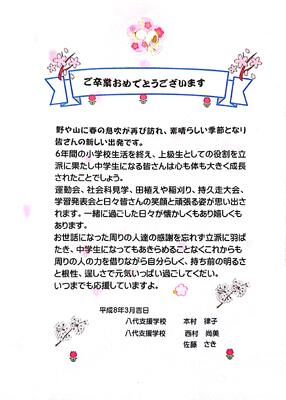 ご卒業おめでとうございます
野や山に春の息吹が再び訪れ、素晴らしい季節となり
皆さんの新しい出発です。
6年間の小学校生活を終え、上級生としての役割を立
派に果たし中学生になる皆さんは心も体も大きく成長
されたことでしょう。
運動会、社会科見学、田植えや稲刈り、持久走大会、
学習発表会と日々皆さんの笑顔と頑張る姿が思い出さ
れます。一緒に過ごした日々が懐かしくもあり嬉しくも
あります。
お世話になった周りの人達の感謝を忘れず立派に羽ば
たき、中学生になってもあきらめることなくこれからも
周りの人の力を借りながら自分らしく、持ち前の明るさ
と根性、逞しさで元気いっぱい過ごしてくだい。
いつまでも応援していますよ。
平成8年3月吉日
八代支援学校 本村 律子
八代支援学校 西村 尚美
佐藤 さき